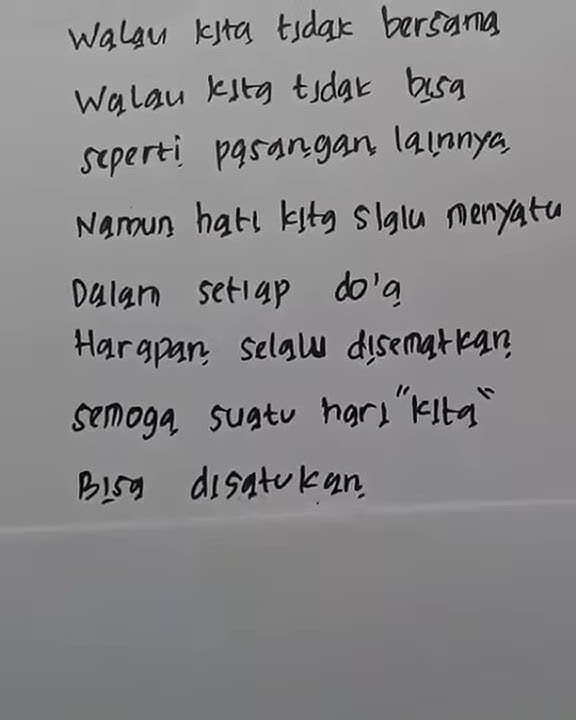 Walau kita tidak bersama
Walau kita tidak bisa
seperti pasangan lainnya
Namun hati kita slalu menyatu
Dalam setiap do'a
Harapan selalu disematkan
semoga suatu hari "kita"
Bisa disatukan